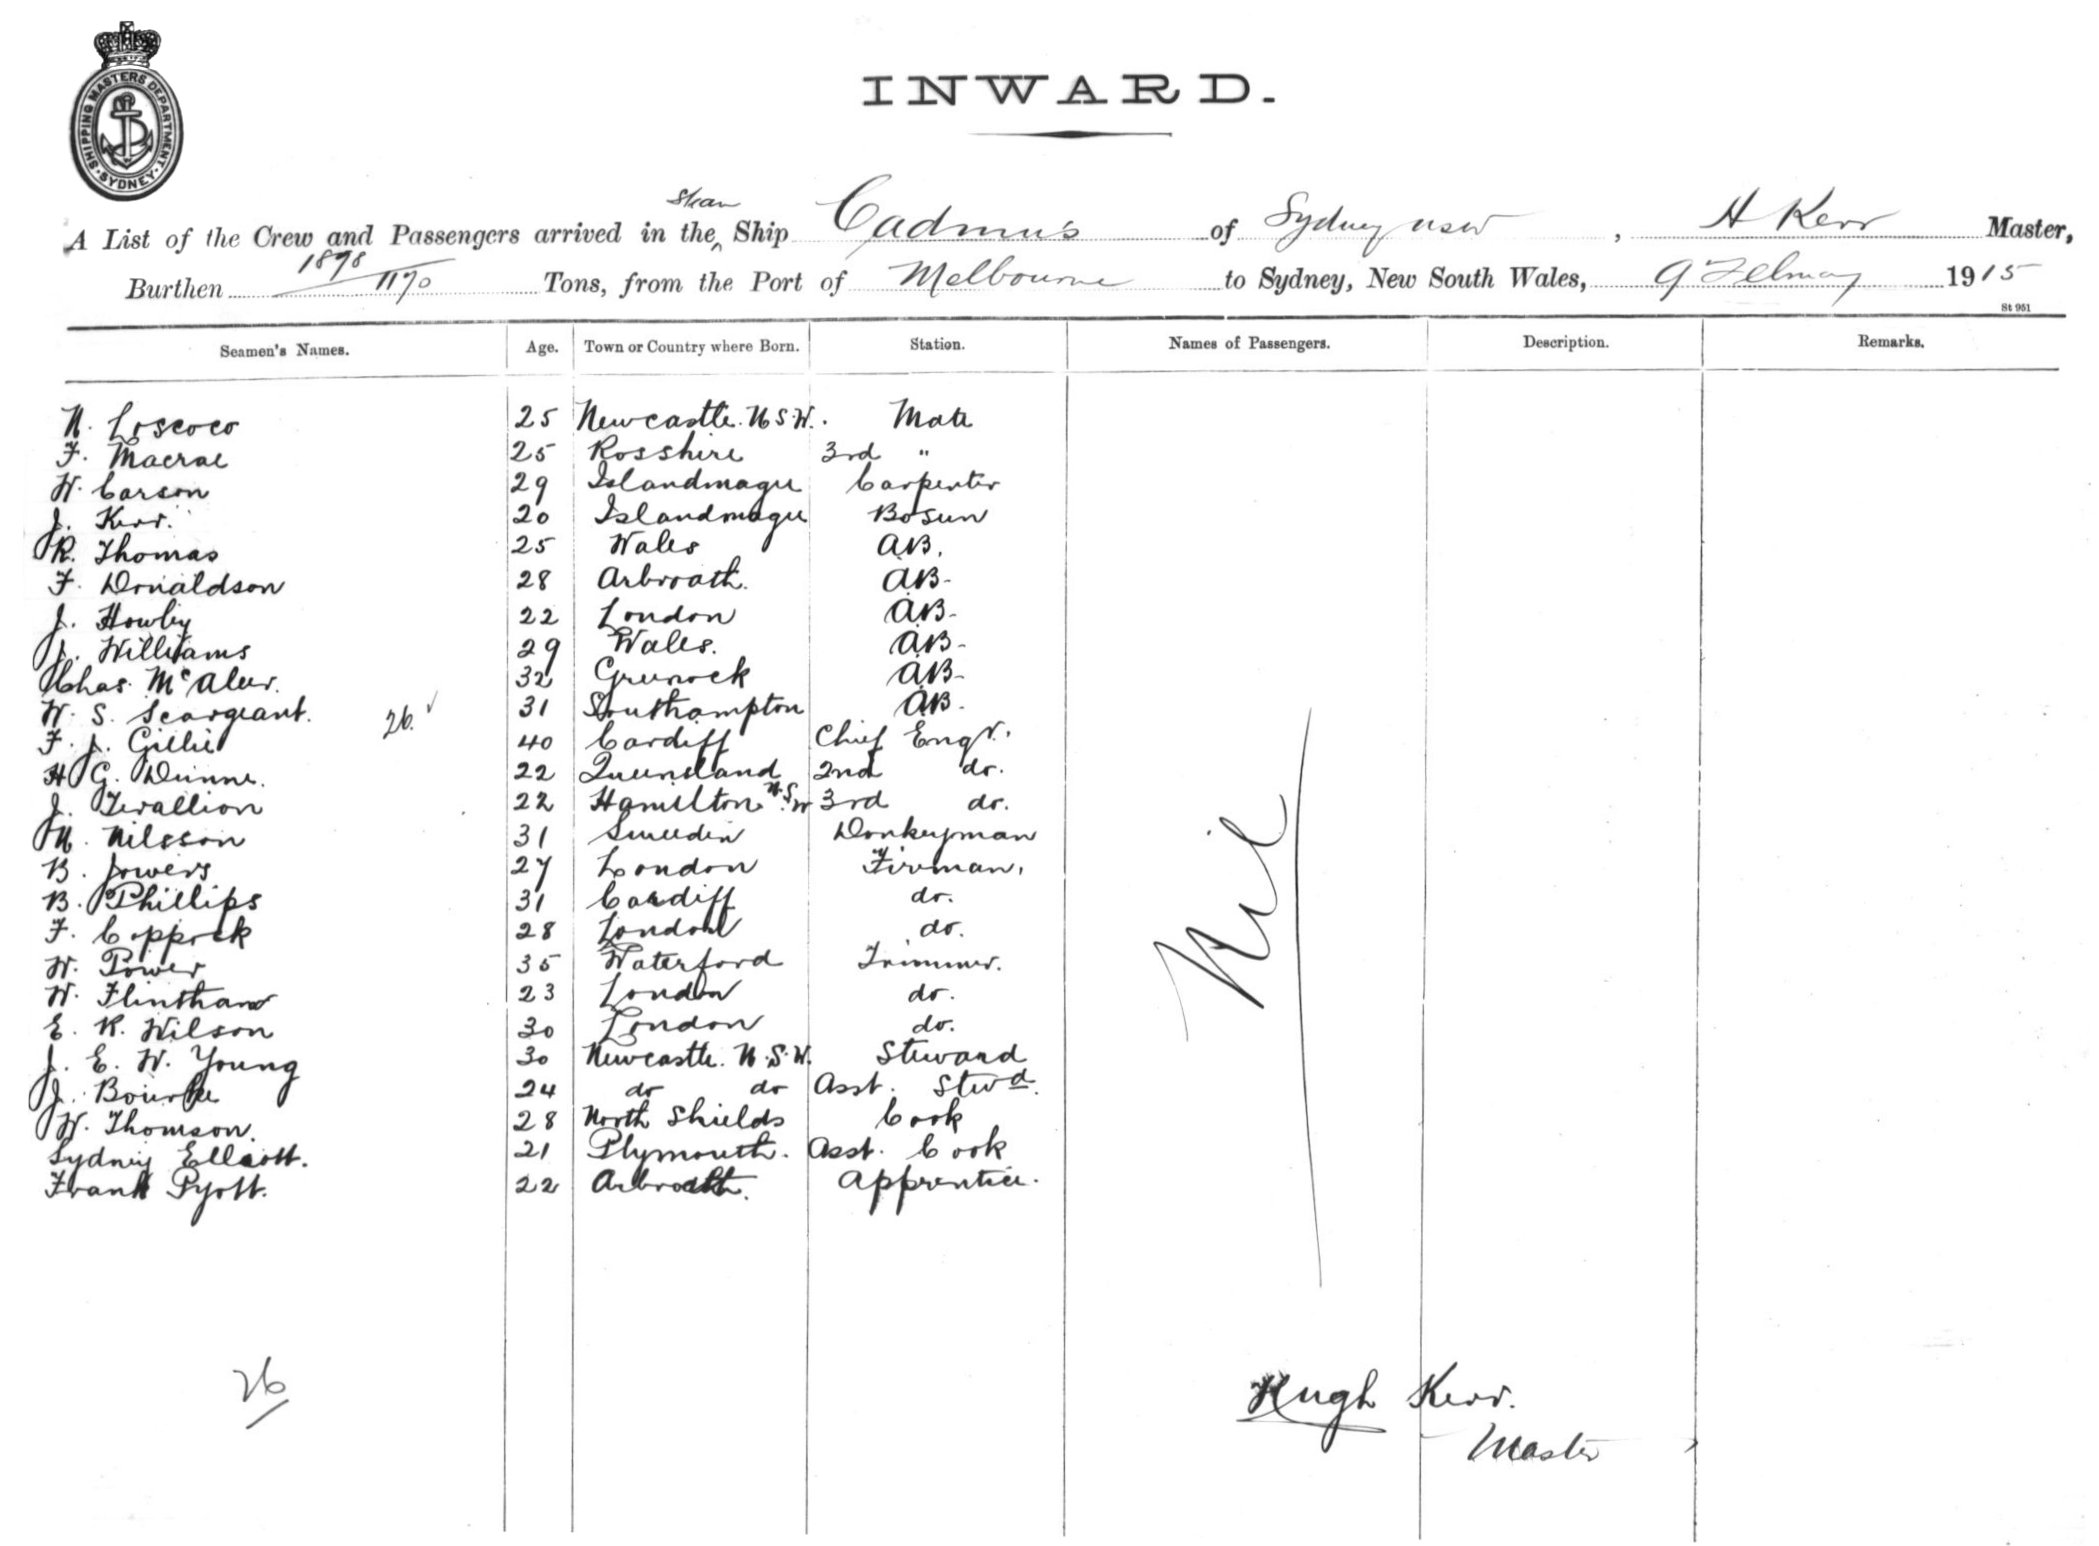 SHIPPING MASTERS DEPARTMENT. SYDNEY.
INWARD.
A List of the Crew and Passengers arrived in the Steam Ship Cadmus of Sydney NSW, H Kerr Master,
Burthen 1898 / 1170 Tons, from the Port of Melbourne to Sydney, New South Wales, 9 February 1915
St 951
Seamen's Names. Age. Town or Country where Born. Station. Names of Passengers. Description. Remarks.
N. Loscoco 25 Newcastle. N.S.W. Mate
F. Macrae 25 Rosshire 3rd "
W. Carson 29 Islandmagee Carpenter
J. Kerr. 20 Islandmagee Bosun
R. Thomas 25 Wales A.B.
F. Donaldson 28 Arbroath. A.B.
J. Howley 22 London A.B.
J. Williams 29 Wales. A.B.
Chas. McAleer. 32 Greenock A.B.
W. S. Seargeant. 31 Southampton A.B.
26.
F. J. Gillie 40 Cardiff Chief Engr.
H G. Dunne. 22 Queensland 2nd do.
J. 22 Hamilton N.S.W 3rd do.
M. Nilsson 31 Sweeden Donkeyman
B. Jowers 27 London Fireman.
B. Phillips 31 Cardiff do.
F. Coppock 28 London do.
W. Power 35 Waterford Trimmer.
W. Flintham 23 London do.
E. R. Wilson 30 London do.
J. E. W. Young 30 Newcastle. N.S.W. Steward
J. Bourke 24 do do Asst. Stwd.
W. Thomson. 28 North Shields Cook
Sydney Elliott. 21 Plymouth. Asst. Cook
Frank Pyott. 22 Arbroath. Apprentice.
Nil
26
Hugh Kerr.
Master